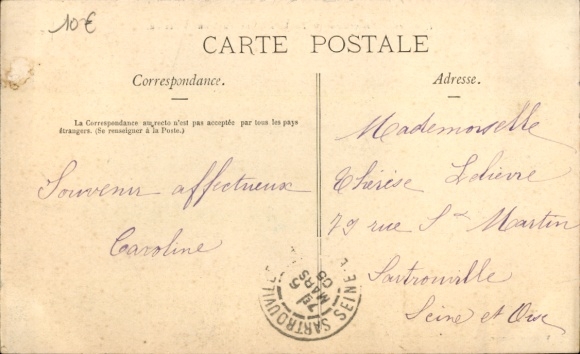 10€
CARTE POSTALE
Correspondance.
Adresse.
La Correspondance au recto n'est pas acceptée par tous les pays
étrangers. (Se renseigner à la Poste.)
Souvenir affectueux
Caroline
Mademoiselle
Thérèse Lelièvre
79 rue St Martin
Sartrouville
Seine et Oise
SARTROUVILLE
SEINE
MARS
05